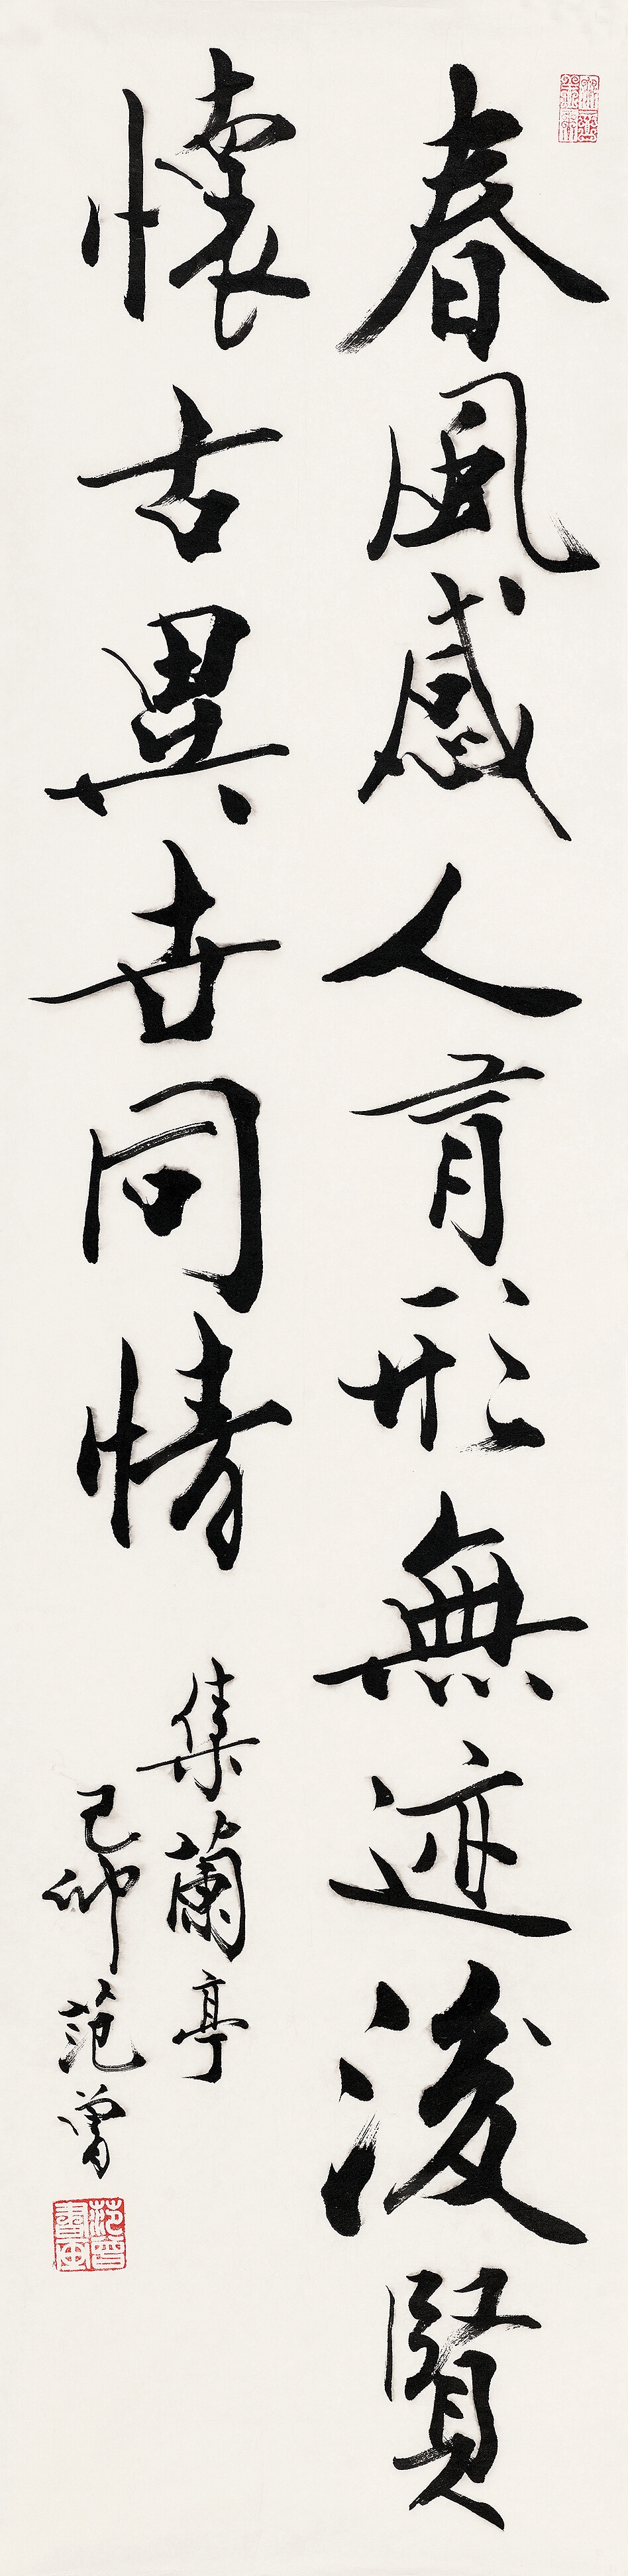 春風感人有形無迹後賢
懷古異世同情
集蘭亭
己卯范曾
范曾書畫